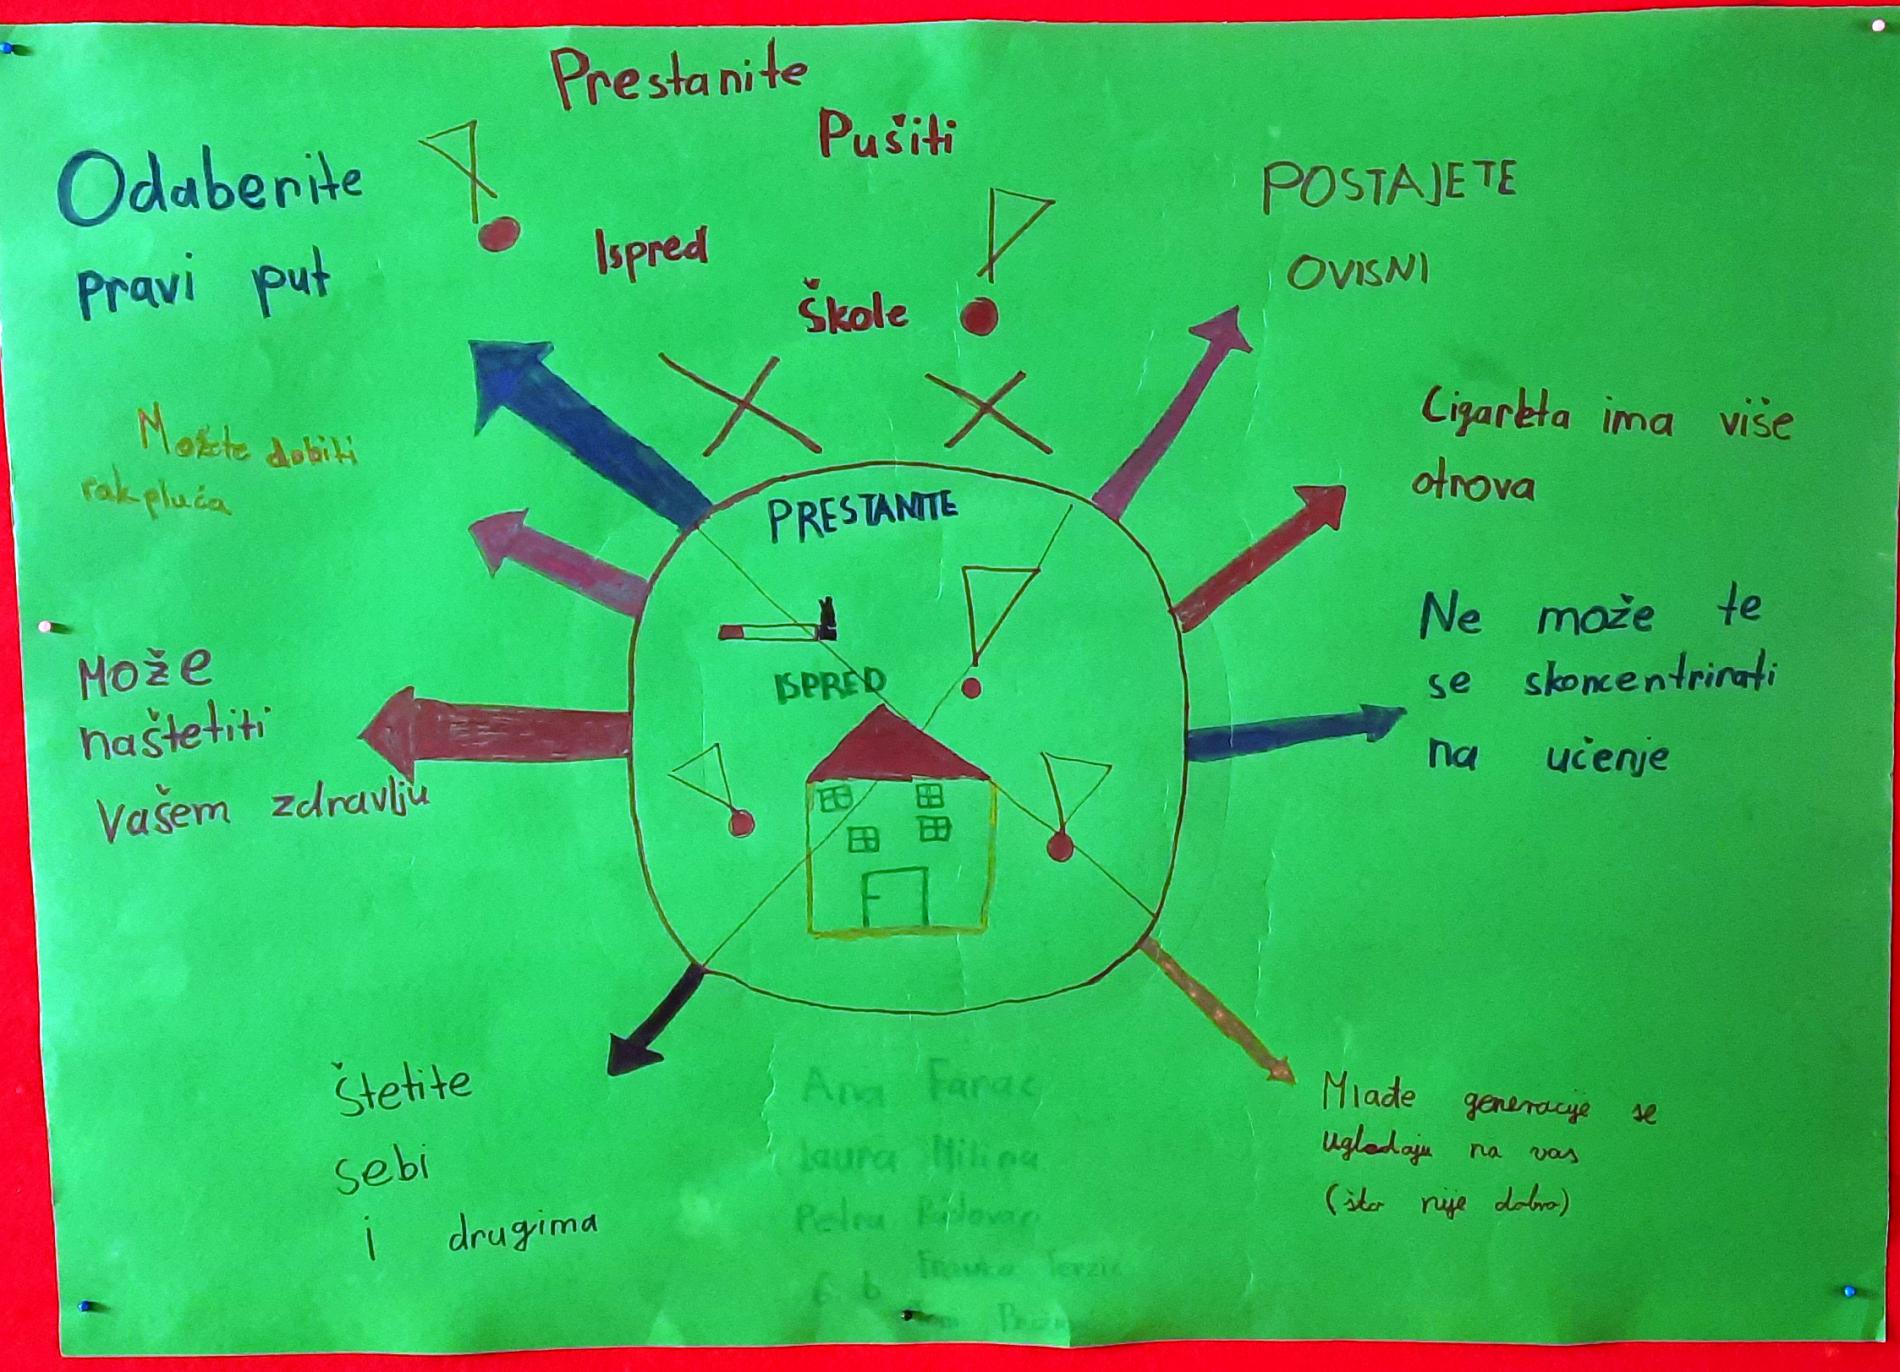 Prestanite
Pušiti
Ispred
Škole
Odaberite
pravi put
Možete dobiti
rak pluća
Može
naštetiti
Vašem zdravlju
Štetite
sebi
i drugima
PRESTANITE
ISPRED
POSTAJETE
OVISNI
Cigareta ima više
otrova
Ne može te
se skoncentrirati
na učenje
Mlađe generacije se
ugledaju na vas
(što nije dobro)
Ana
Laura
Petra
6. b